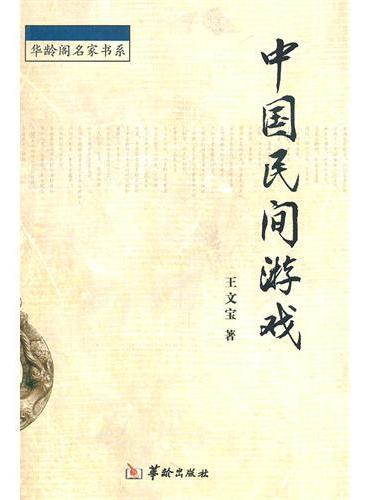 华龄阁名家书系
中国民间游戏
王文宝 著
华龄出版社